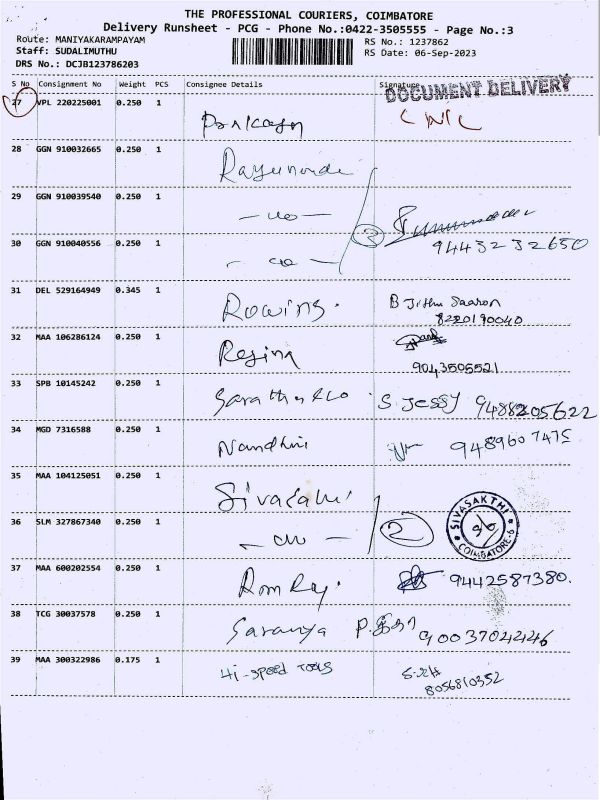 THE PROFESSIONAL COURIERS, COIMBATORE
Delivery Runsheet - PCG - Phone No.:0422-3505555 - Page No.:3
Route: MANIYAKARAMPAYAM RS No.: 1237862
Staff: SUDALIMUTHU RS Date: 06-Sep-2023
DRS No.: DCJB123786203
S No Consignment No Weight PCS Consignee Details Signature
DOCUMENT DELIVERY
27 VPL 220225001 0.250 1
28 GGN 910032665 0.250 1
29 GGN 910039540 0.250 1
2
30 GGN 910040556 0.250 1 9443232650
31 DEL 529164949 0.345 1 Rowins. B Jithu Saaron
8220190040
32 MAA 106286124 0.250 1 Regina
9043505521
33 SPB 10145242 0.250 1 S Jessy 9488205622
34 MGD 7316588 0.250 1 Nandhini 9489607475
35 MAA 104125051 0.250 1
36 SLM 327867340 0.250 1 2 SIVASAKTHI COIMBATORE-6
37 MAA 600202554 0.250 1 Rom Raj. 9442587380.
38 TCG 30037578 0.250 1 Saranya 9003702446
39 MAA 300322986 0.175 1 Hi-speed Tools
8056810352